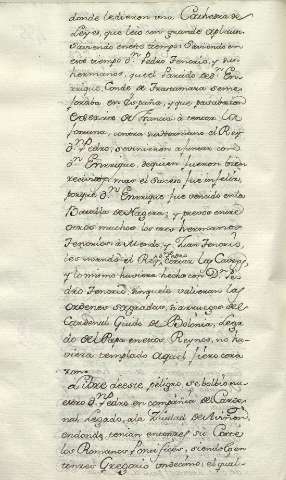 donde le dieron una Cathedra de
Leyes, que leió con grande aplauso.
Saviendo en este tiempo
este tiempo Dn. Pedro Tenorio, y sus
hermanos, que el Partido de Dn. En-
rrique Conde de Trastamara se me-
joraba en España, y que passaba con
exercito de Francia à tentar la
fortuna, contra su hermano el Rey
Dn. Pedro, se vinieron à juntar con
Dn. Enrrique, de quien fueron bien
recividos; mas el sucesso fue infeliz,
porque Dn. Enrrique fue vencido en la
Batalla de Nagera; y presos entre
otros muchos los tres hermanos
Tenorios à Mendo, y Juan Tenorio,
les mandó el Rey Dn. Pedro cortar las Cavezas
y lo mismo huviera hecho con Dn. Pe-
dro Tenorio, sin que le valieran las
ordenes sagradas, si à ruegos del
Cardenal Guido de Bolonia, Lega-
do del Papa en estos Reynos, no hu-
viera templado aquel fiero cora-
zon.
Libre de este peligro, se bolbió nu-
estro Dn. Pedro en compañia del Carde-
nal Legado, à la Ciudad de Aviñon,
en donde tenian entonces su Corte
los Romanos Pontifices, siendolo en-
tonces Gregorio Onzecimo, el qual